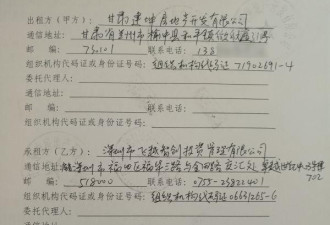 出租方（甲方）：甘肃建坤房地产开发有限公司
通信地址：甘肃省兰州市榆中县和平镇
邮 编：73010 联系电话：138
组织机构代码证或身份证号码：组织机构代码证 71902891-4
委托代理人：
通信地址：
组织机构代码证或身份证号码：
承租方（乙方）：深圳市飞越智创投资管理有限公司
通信地址：深圳市福田区福华三路与金田路交汇处 702
邮 编：518000 联系电话：0755-25822401
组织机构代码证或身份证号码：组织机构代码证 06631265-6
委托代理人：
通信地址：